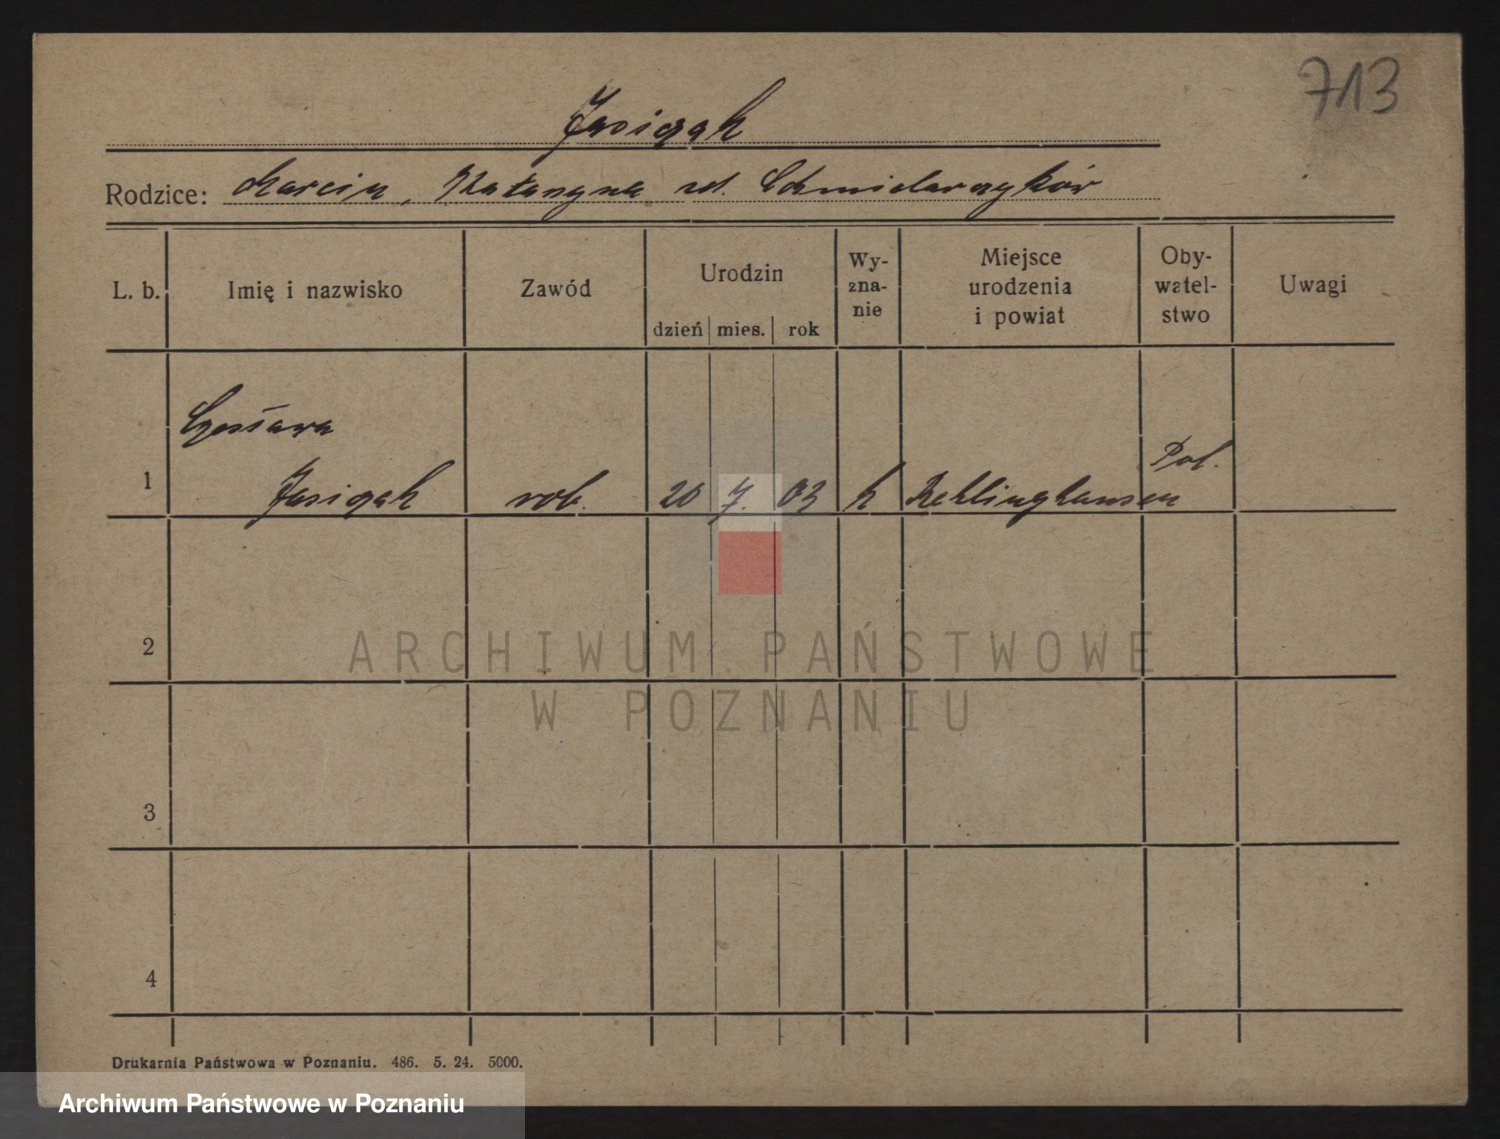 713
Jasiak
Rodzice: Marcin, Katarzyna zd. Chmielarczyków
L. b. Imię i nazwisko Zawód Urodzin dzień mies. rok Wy-zna-nie Miejsce urodzenia i powiat Oby-watel-stwo Uwagi
Czesława
1 Jasiak rob. 20 7. 03 k Reklinghausen Pol.
2
ARCHIWUM PAŃSTWOWE
W POZNANIU
3
4
Drukarnia Państwowa w Poznaniu. 486. 5. 24. 5000.
Archiwum Państwowe w Poznaniu